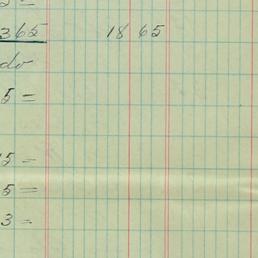 5=
365 1865
do
5=
15=
5=
3=